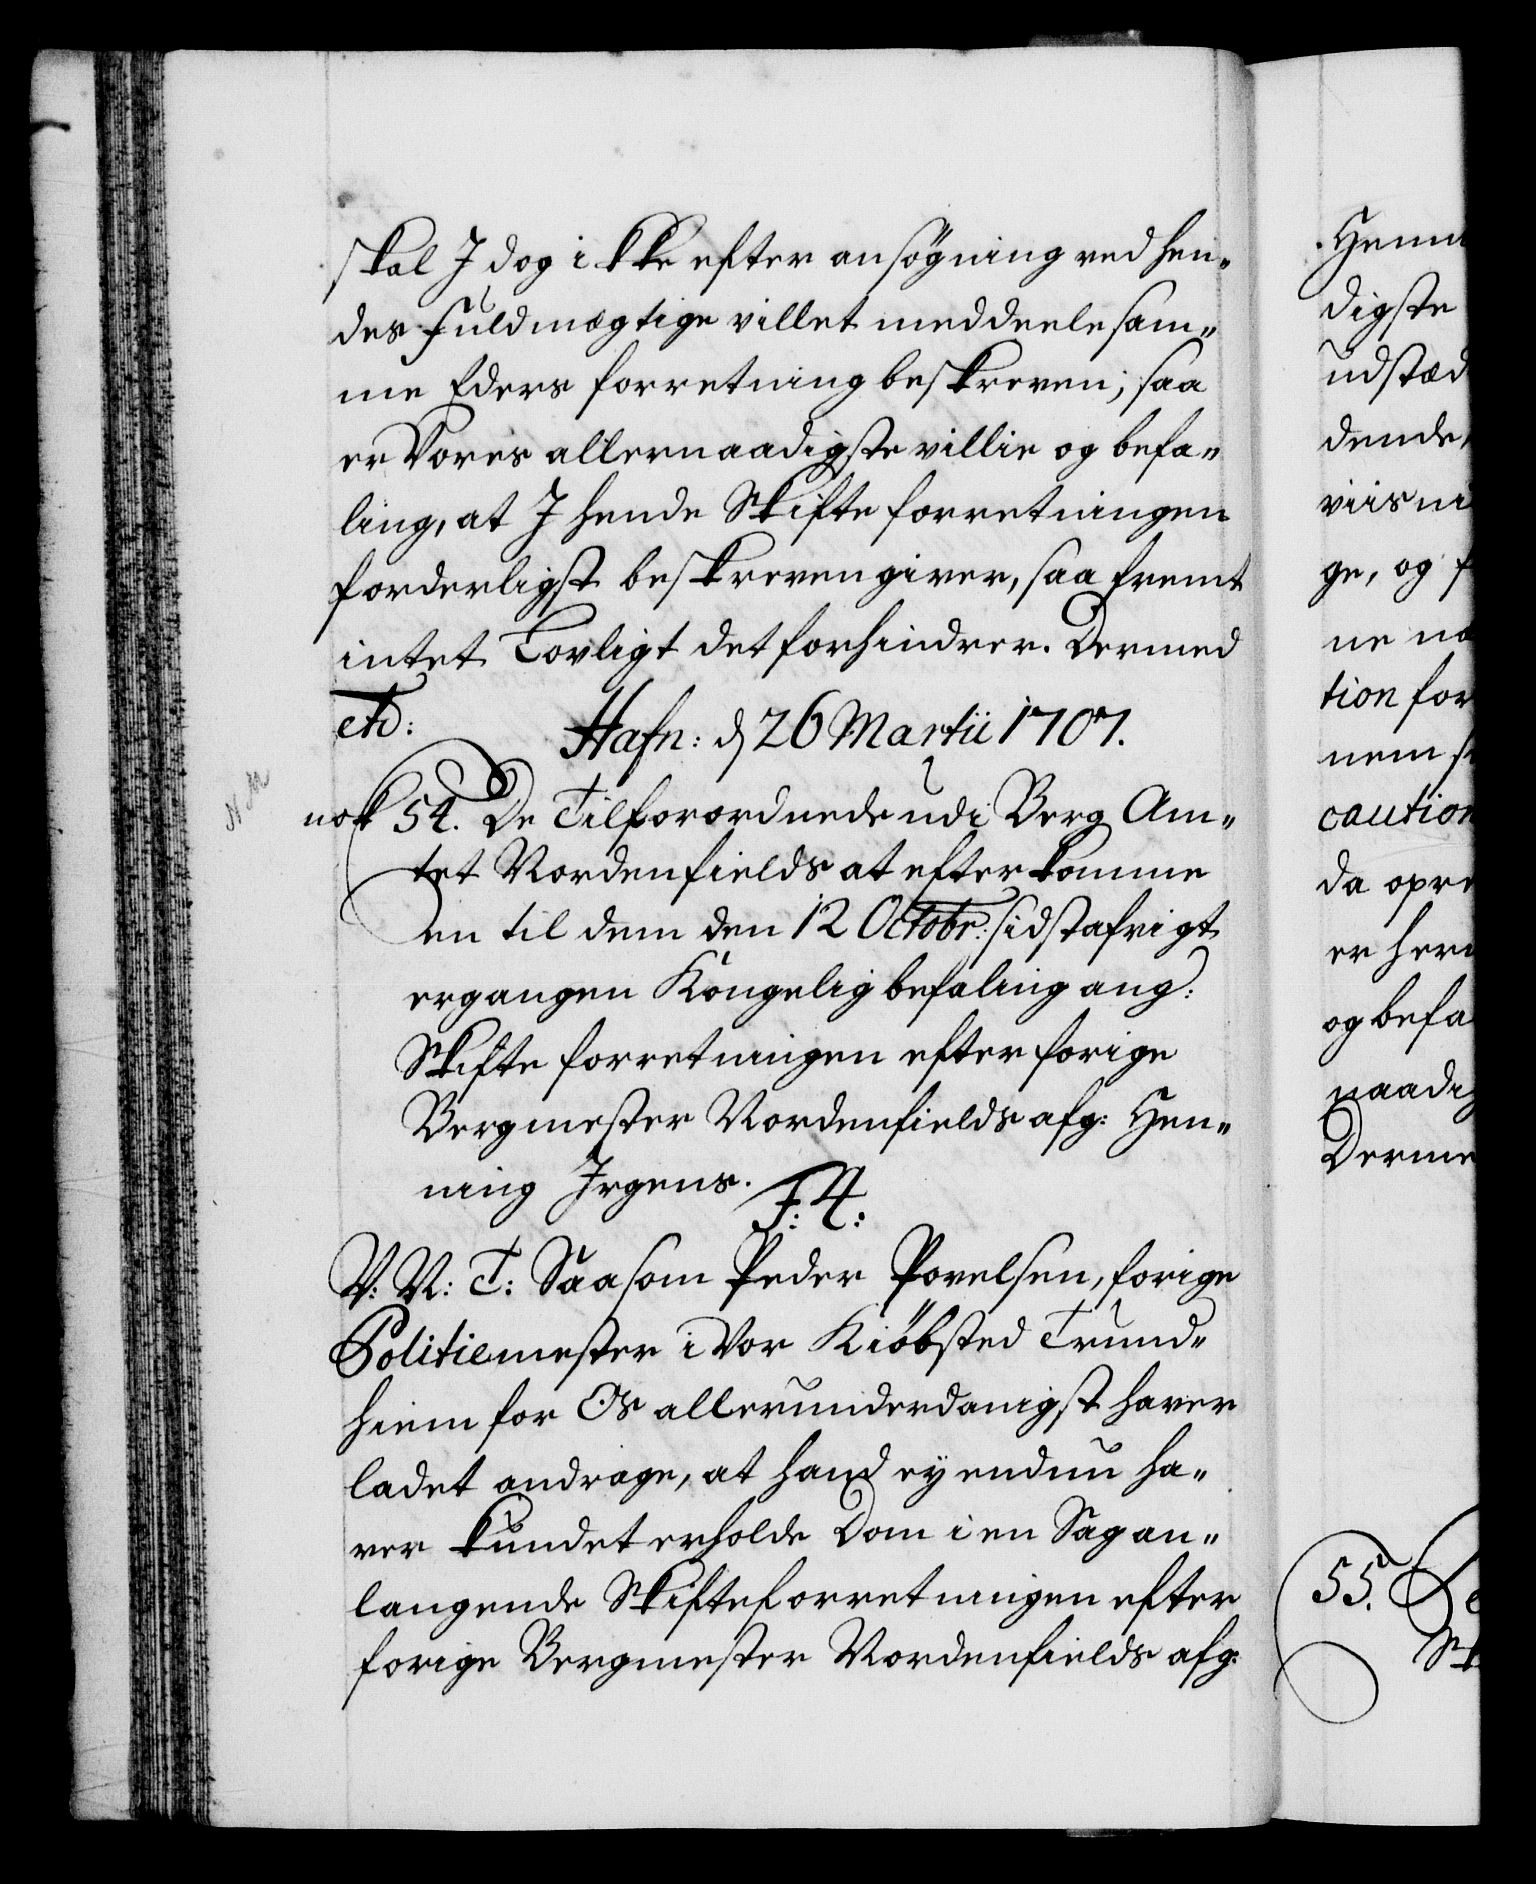 skal I dog ikke efter ansøgning ved hen„
des fuldmægtige villet meddeele sam„
me Eders forretning beskreven; saa
er Vores allernaadigste villie og befa„
ling, at I hende Skifte forretningen
forderligst beskreven giver, saa fremt
intet Lovligt det forhindrer. Dermed
etc: Hafn: d 26 Martii 1707.
N M
nok 54. De Tilforordnede udi Berg Am„
tet Nordenfields at efterkomme
en til dem den 12 Octobr: sidstafvigt
ergangen Kongelig befaling ang:
Skifte forretningen efter forige
Bergmester Nordenfields afg: Hen„
ning Irgens. F: 4:
V: N: T: Saasom Peder Povelsen, forige
Politiemester i Vor Kiöbsted Trund„
hiem for Os allerunderdanigst haver
ladet andrage, at hand ey endnu ha„
ver kundet erholde Dom i en Sag an„
langende Skifteforretningen efter
forige Bergmester Nordenfields afg:
Henn
digste
udstæd
dende
viisni
ge, og f
ne næ
tion for
nem s
caution
da opre
er her
og befa
naadig
Derme
55. De
Sk